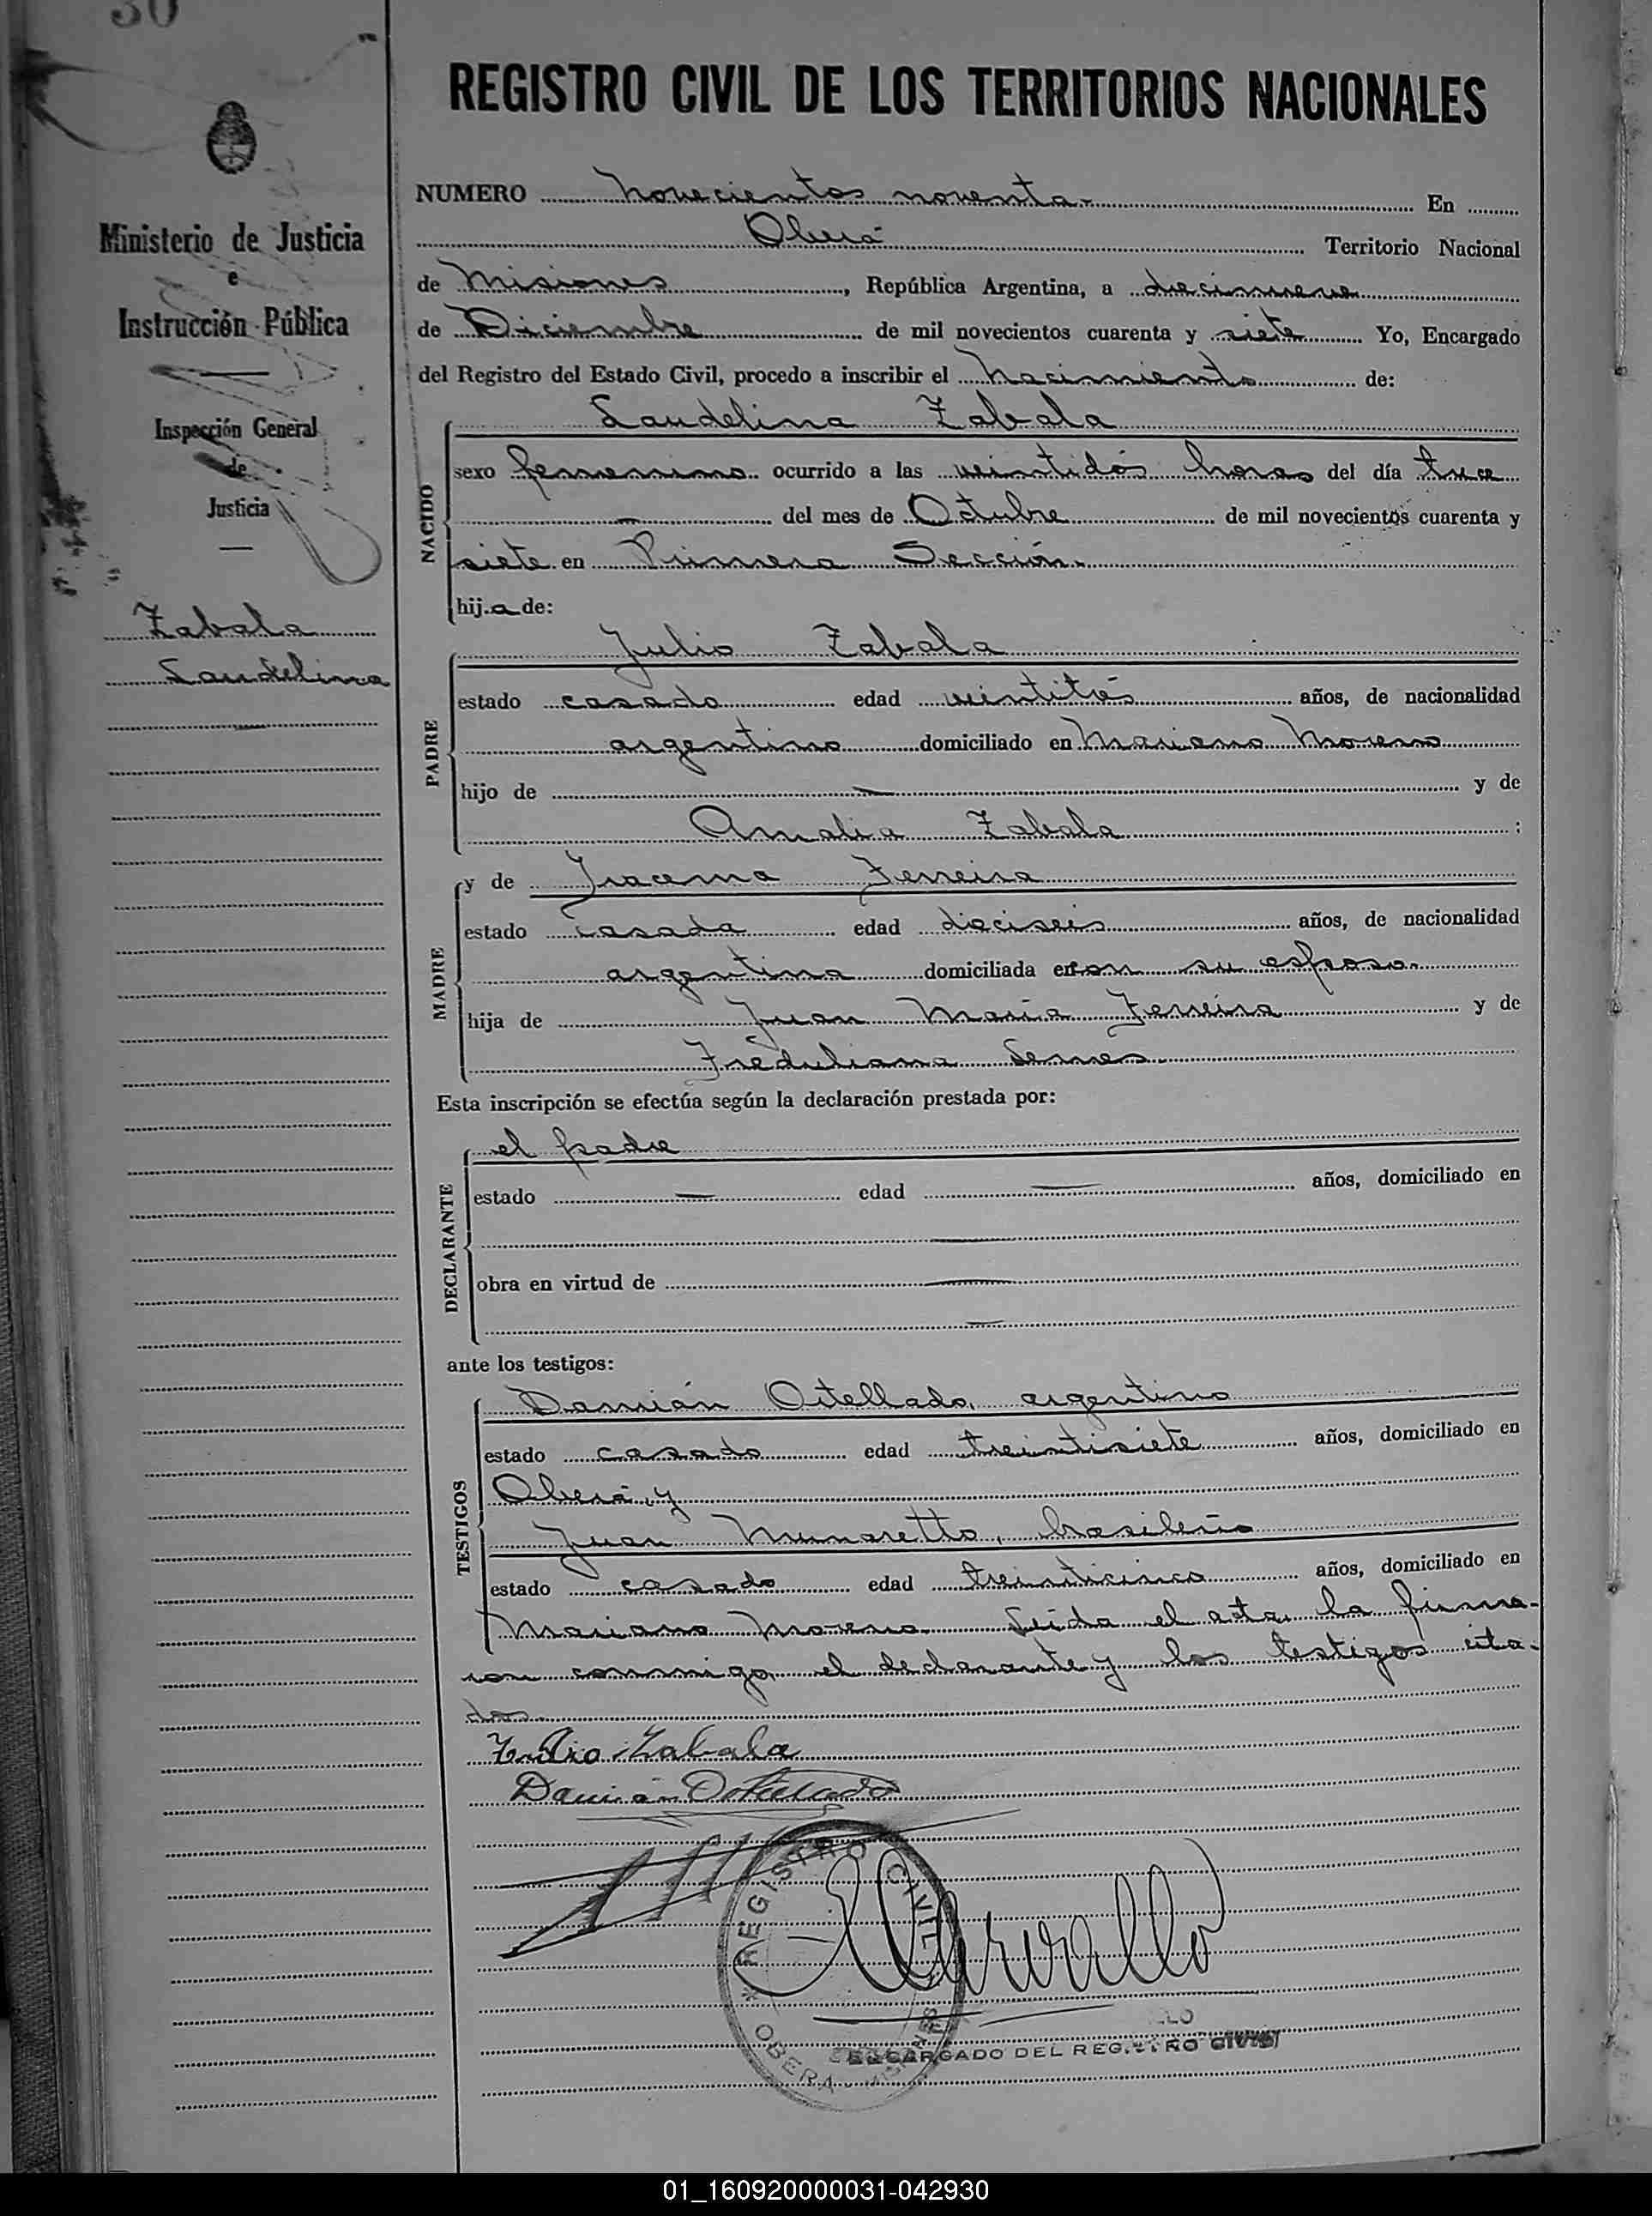 30
REGISTRO CIVIL DE LOS TERRITORIOS NACIONALES
Ministerio de Justicia
e
Instrucción Pública
Inspección General
de
Justicia
Zabala
Laudelina
NUMERO novecientos noventa.- En
Oberá Territorio Nacional
de Misiones, República Argentina, a diecinueve
de Diciembre de mil novecientos cuarenta y siete Yo, Encargado
del Registro del Estado Civil, procedo a inscribir el nacimiento de:
NACIDO
Laudelina Zabala
sexo femenino ocurrido a las veintidós horas del día trece
— del mes de Octubre de mil novecientos cuarenta y
siete en Primera Sección.
hij.a de:
PADRE
Julio Zabala
estado casado edad veintitrés años, de nacionalidad
argentino domiciliado en Mariano Moreno
hijo de — y de
Amalia Zabala :
MADRE
y de Iracema Ferreira
estado casada edad dieciseis años, de nacionalidad
argentina domiciliada con su esposo.
hija de Juan María Ferreira y de
Freduliana
Esta inscripción se efectúa según la declaración prestada por:
DECLARANTE
el padre
estado — edad — años, domiciliado en
—
obra en virtud de —
—
ante los testigos:
TESTIGOS
Damián Ortellado, argentino
estado casado edad treintisiete años, domiciliado en
Oberá, y
Juan Munaretto, brasileño
estado casado edad treinticinco años, domiciliado en
Mariano Moreno. Leída el acta, la firma-
ron conmigo el declarante y los testigos cita-
dos.
Julio Zabala
Damián Ortellado
REGISTRO CIVIL
OBERA - MISIONES
ENCARGADO DEL REGISTRO CIVIL
01_160920000031-042930